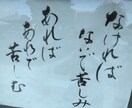 なければ
ないで苦しみ
あれば
あれで苦しむ